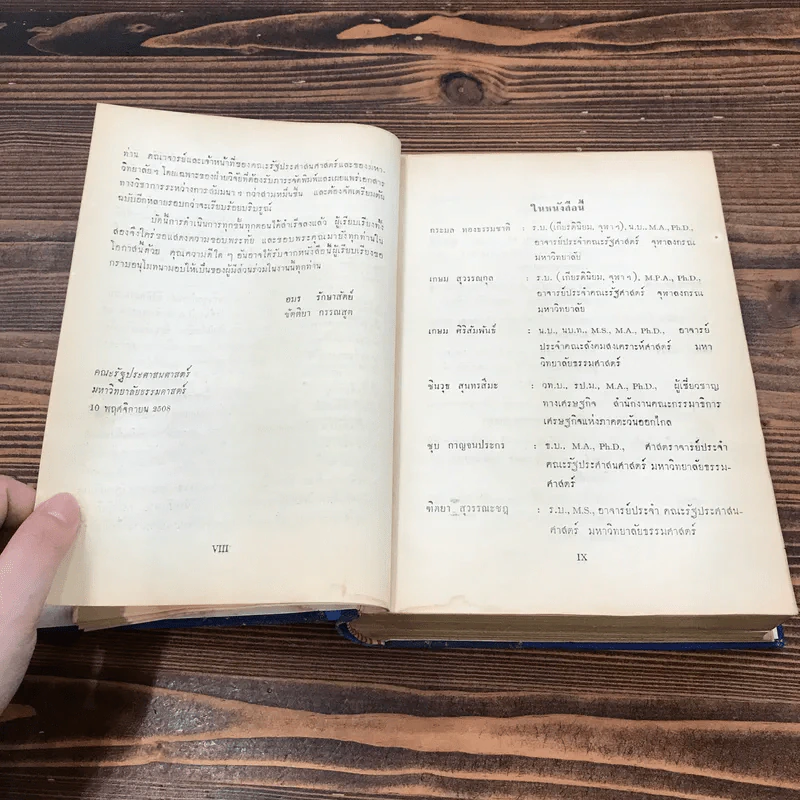 ท่าน คณาจารย์และเจ้าหน้าที่ของคณะรัฐประศาสนศาสตร์และของมหา-
วิทยาลัยฯ โดยเฉพาะของฝ่ายวิจัยที่ต้องรับภาระจัดพิมพ์และเผยแพร่เอกสาร
ทางวิชาการระหว่างการสัมมนาฯ กว่าสามหมื่นชิ้น และต้องจัดเตรียมต้น
ฉบับอีกหลายรอบกว่าจะเรียบร้อยบริบูรณ์
บัดนี้การดำเนินการทุกขั้นทุกตอนได้สำเร็จลงแล้ว ผู้เรียบเรียงทั้ง
สองจึงใคร่ขอแสดงความขอบพระทัย และขอบพระคุณมายังทุกท่านใน
โอกาสนี้ด้วย คุณความดีใดๆ อันอาจได้รับจากหนังสือนี้ผู้เรียบเรียงขอ
กราบอนุโมทนามอบให้เป็นของผู้มีส่วนร่วมในงานนี้ทุกท่าน
อมร รักษาสัตย์
ขัตติยา กรรณสูต
คณะรัฐประศาสนศาสตร์
มหาวิทยาลัยธรรมศาสตร์
10 พฤศจิกายน 2508
VIII
ในหนังสือนี้
กระมล ทองธรรมชาติ : ร.บ. (เกียรตินิยม, จุฬาฯ), น.บ., M.A., Ph.D.,
อาจารย์ประจำคณะรัฐศาสตร์ จุฬาลงกรณ
มหาวิทยาลัย
เกษม สุวรรณกุล : ร.บ. (เกียรตินิยม, จุฬาฯ), M.P.A., Ph.D.,
อาจารย์ประจำคณะรัฐศาสตร์ จุฬาลงกรณ
มหาวิทยาลัย
เกษม ศิริสัมพันธ์ : น.บ., นบ.ท., M.S., M.A., Ph.D., อาจารย์
ประจำคณะสังคมสงเคราะห์ศาสตร์ มหา
วิทยาลัยธรรมศาสตร์
ชินวุธ สุนทรสีมะ : วท.บ., รป.ม., M.A., Ph.D., ผู้เชี่ยวชาญ
ทางเศรษฐกิจ สำนักงานคณะกรรมาธิการ
เศรษฐกิจแห่งภาคตะวันออกไกล
ชุบ กาญจนประกร : ธ.บ., M.A., Ph.D., ศาสตราจารย์ประจำ
คณะรัฐประศาสนศาสตร์ มหาวิทยาลัยธรรม-
ศาสตร์
ฑิตยา สุวรรณะชฎ : ร.บ., M.S., อาจารย์ประจำ คณะรัฐประศาสน-
ศาสตร์ มหาวิทยาลัยธรรมศาสตร์
IX